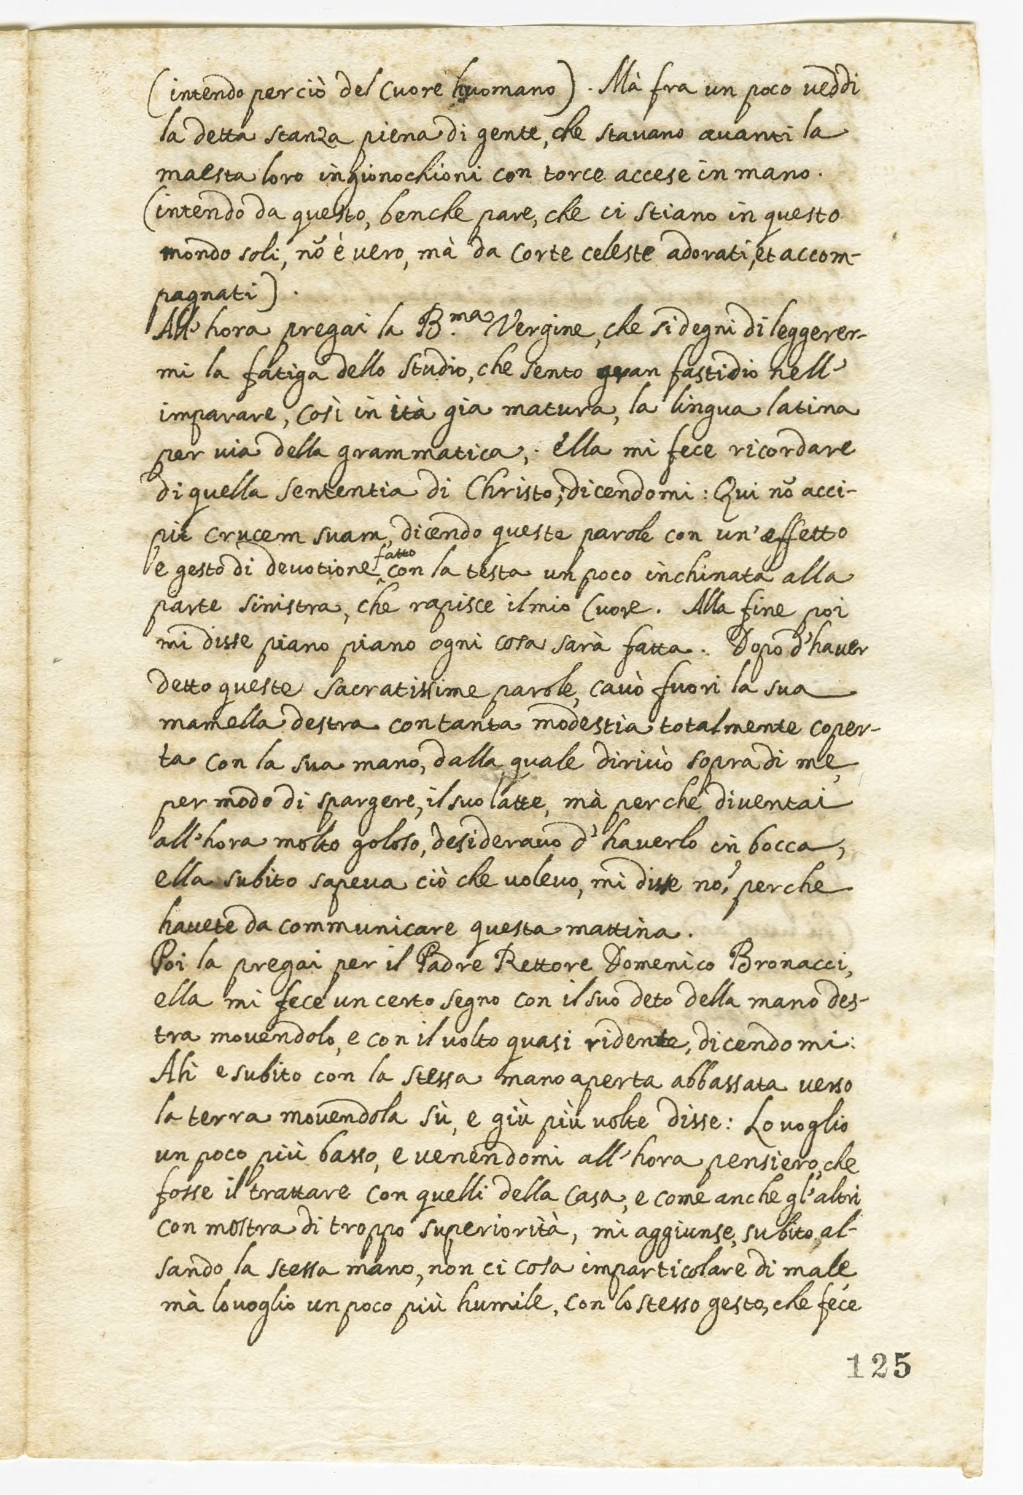 (intendo perciò del Cuore huomano). Mà fra un poco veddi
la detta stanza piena di gente, che stavano avanti la
maesta loro inginochioni con torce accese in mano.
(intendo da questo, benche pare, che ci stiano in questo
mondo soli, nõ è vero, mà da Corte celeste adorati, et accom-
pagnati).
All'hora pregai la B.ma Vergine, che si degni di leggerer-
mi la fatiga dello Studio, che sento gran fastidio nell'
imparare, così in ità gia matura, la lingua latina
per via della grammatica, ella mi fece ricordare
di quella Sententia di Christo; dicendomi: Qui nõ acci-
pit crucem suam, dicendo queste parole con un'effetto
e gesto di devotione fatto con la testa un poco inchinata alla
parte sinistra, che rapisce il mio Cuore. Alla fine poi
mi disse piano piano ogni cosa sarà fatta. Dopo d'haver
detto queste sacratissime parole, cavò fuori la sua
mamella destra con tanta modestia totalmente coper-
ta con la sua mano, dalla quale dirivò sopra di me,
per modo di spargere, il suo latte, mà perche diventai
all'hora molto goloso, desideravo d'haverlo in bocca,
ella subito sapeva ciò che volevo, mi disse nò, perche
havete da communicare questa mattina.
Poi la pregai per il Padre Rettore Domenico Bronacci,
ella mi fece un certo segno con il suo deto della mano des-
tra movendolo, e con il volto quasi ridente, dicendomi:
Ah e subito con la stessa mano aperta abbassata verso
la terra movendola sù, e giù più volte disse: Lo voglio
un poco più basso, e venendomi all'hora pensiero, che
fosse il trattare con quelli della Casa, e come anche gl'altri
con mostra di troppo superiorità, mi aggiunse, subito al-
sando la stessa mano, non ci cosa imparticolare di male
mà lo voglio un poco più humile, con lo stesso gesto, che fece
125